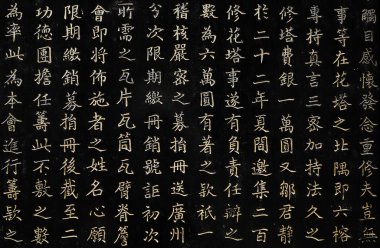 矚目感懷發念修夫豈無
事等在花塔之北隅即六榕
專持真言三密加持法久之
修塔費銀一萬圓又鄒君靜
於二十二年夏間邀集二百
修花塔事遂有負責任辦之
數為六萬圓有著之款祇一
稽核嚴密之募捐冊送廣州
分次限期繳冊銷號詎初次
所需之瓦片瓦筒瓦臂脊簷
會即將佈施者之姓名心願
限期繳銷募捐冊後截至二
功德團擔任籌此不敷之數
為率此為本會進行籌款之